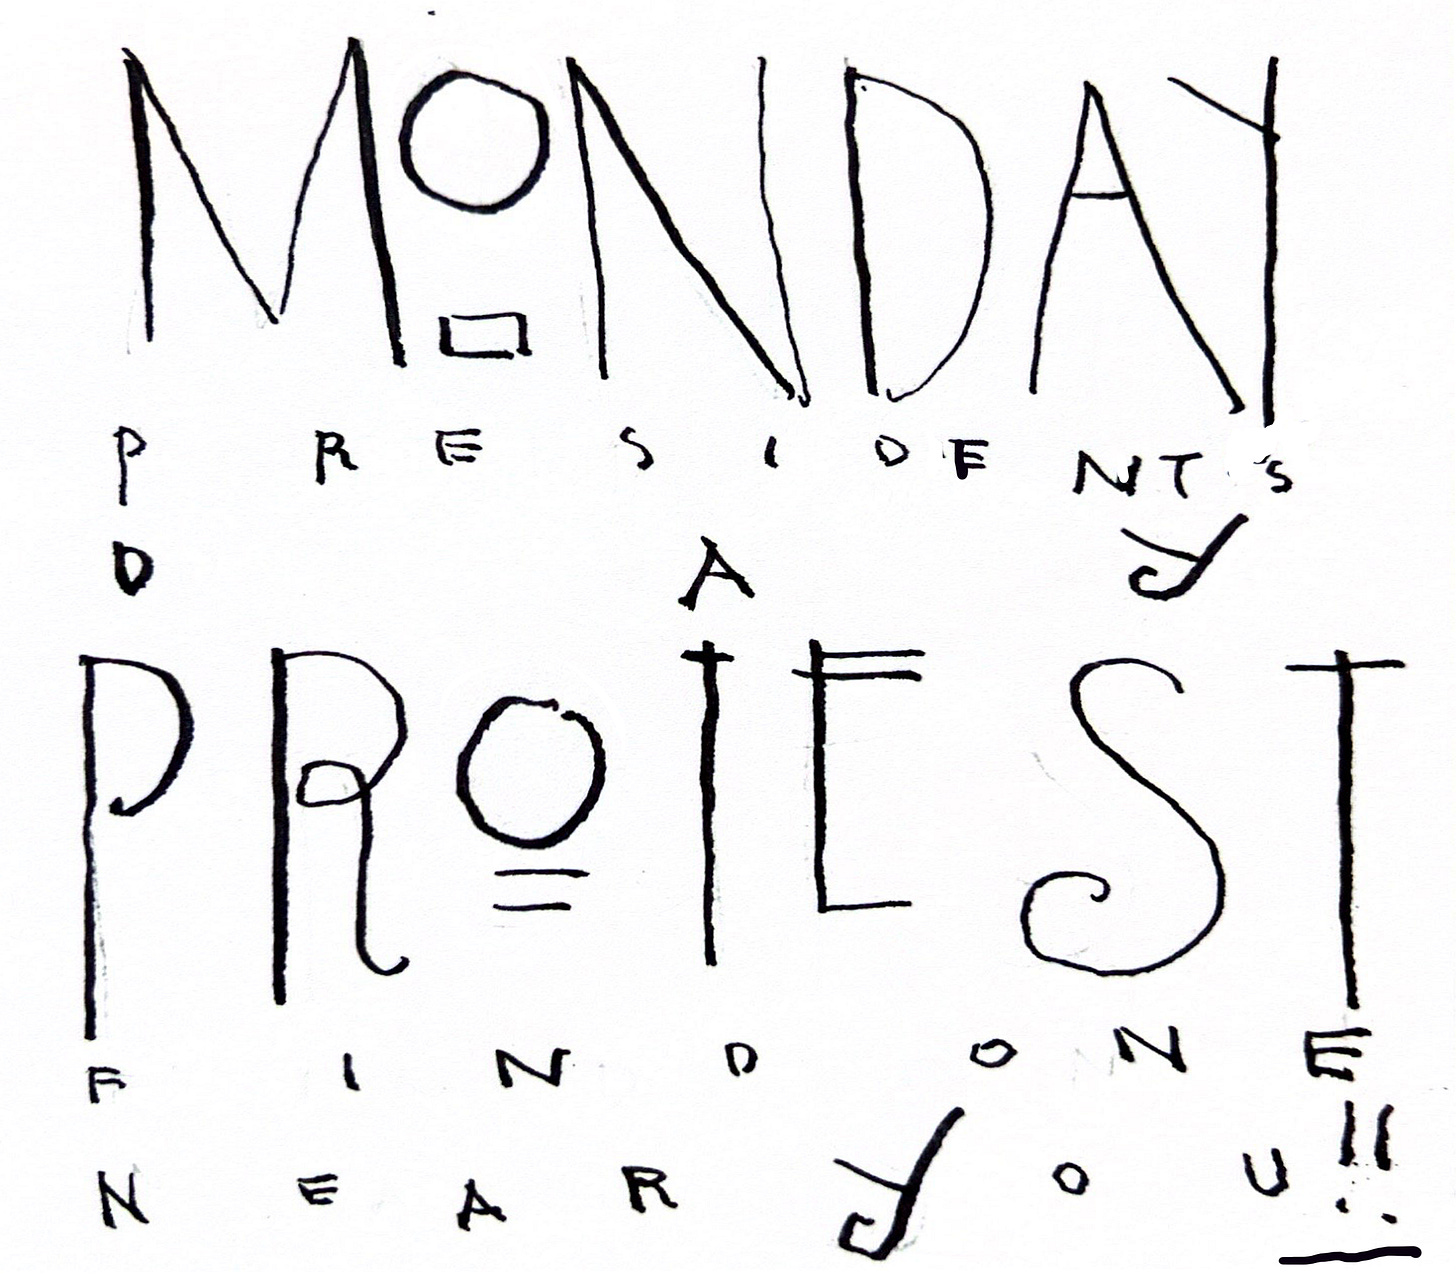 MONDAY
PRESIDENTS
DAY
PROTEST
FIND ONE
NEAR YOU!!